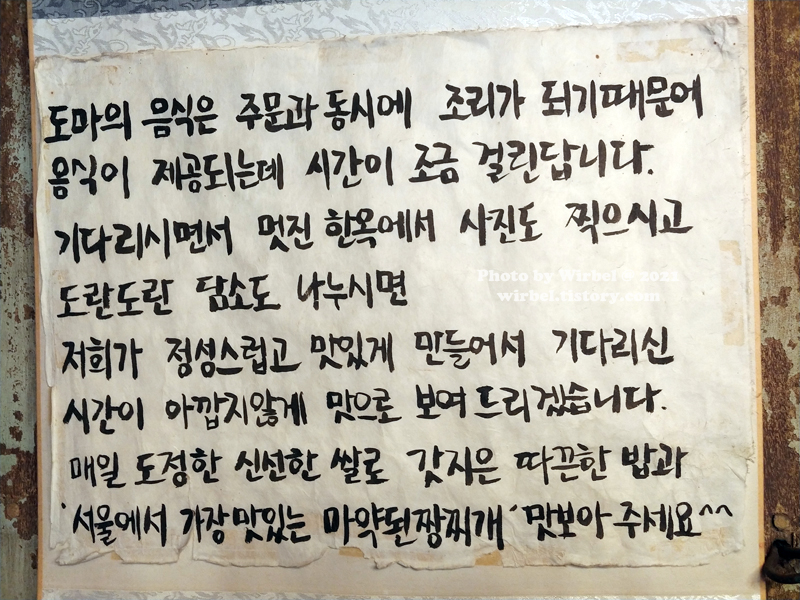 도마의 음식은 주문과 동시에 조리가 되기때문에
음식이 제공되는데 시간이 조금 걸린답니다.
기다리시면서 멋진 한옥에서 사진도 찍으시고
Photo by Wirbel © 2022
도란도란 담소도 나누시면
wirbel.tistory.com
저희가 정성스럽고 맛있게 만들어서 기다리신
시간이 아깝지않게 맛으로 보여드리겠습니다.
매일 도정한 신선한 쌀로 갓지은 따끈한 밥과
'서울에서 가장맛있는 마약된짱찌개' 맛보아 주세요^^